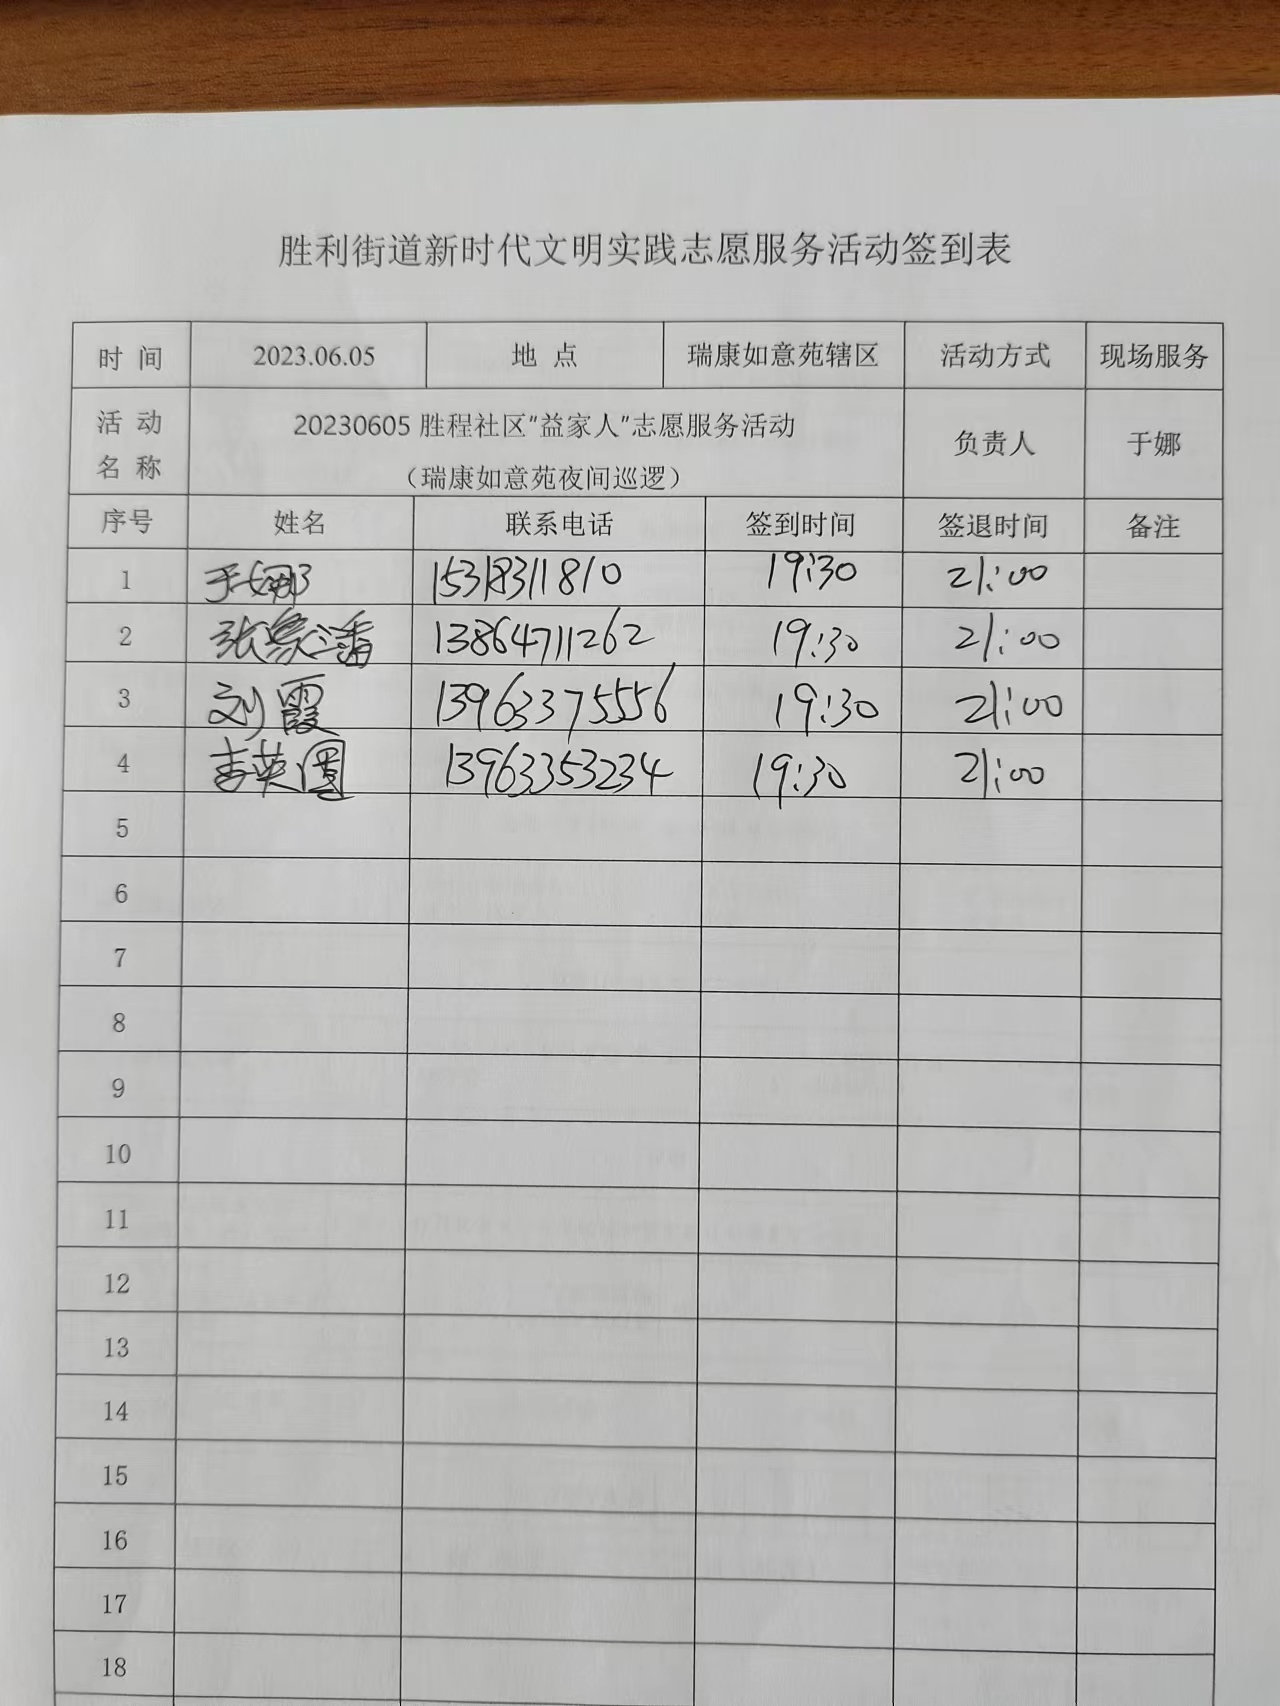 胜利街道新时代文明实践志愿服务活动签到表
时 间 2023.06.05 地 点 瑞康如意苑辖区 活动方式 现场服务
活 动 名 称 20230605 胜程社区“益家人”志愿服务活动 负责人 于娜
（瑞康如意苑夜间巡逻）
序号 姓名 联系电话 签到时间 签退时间 备注
1 于娜 15318311810 19:30 21:00
2 张象潘 13864711262 19:30 21:00
3 刘霞 13963375556 19:30 21:00
4 李英圆 13963353234 19:30 21:00
5
6
7
8
9
10
11
12
13
14
15
16
17
18